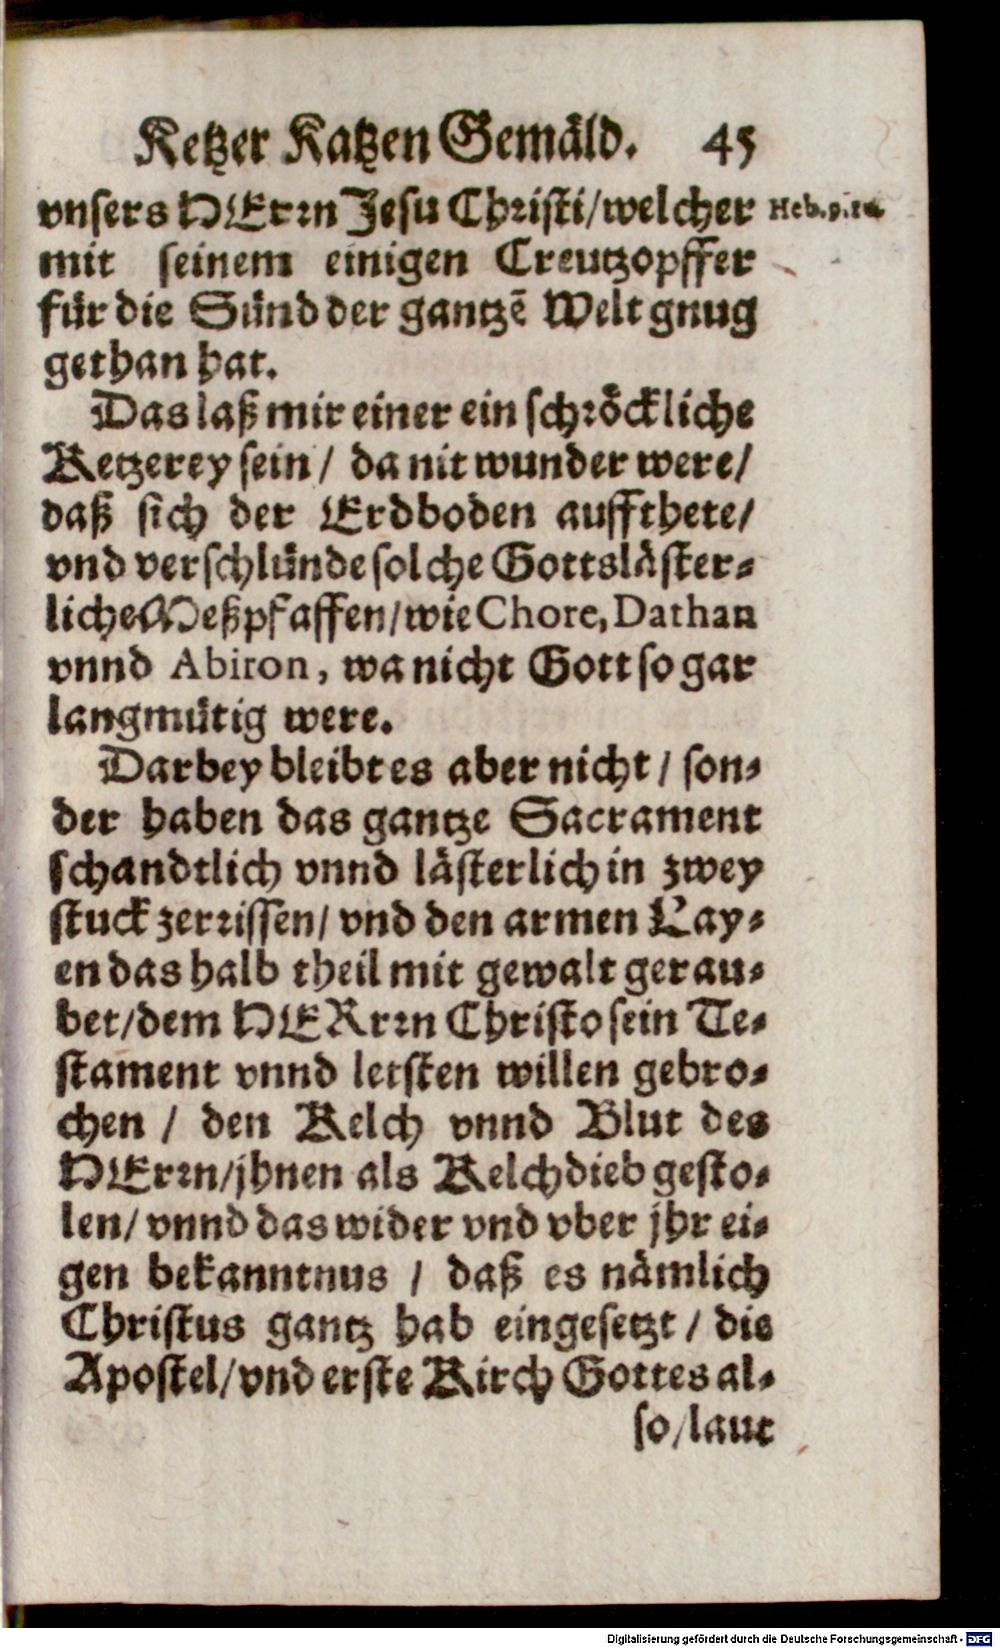 Ketzer Katzen Gemäld. 45
vnsers HErrn Jesu Christi/welcher Heb.9.
mit seinem einigen Creutzopffer
für die Sünd der gantzẽ Welt gnug
gethan hat.
Das laß mir einer ein schröckliche
Ketzerey sein/ da nit wunder were/
daß sich der Erdboden auffthete/
vnd verschlünde solche Gottsläster-
liche Meßpfaffen/wie Chore, Dathan
vnnd Abiron, wa nicht Gott so gar
langmütig were.
Darbey bleibt es aber nicht/ son-
der haben das gantze Sacrament
schandtlich vnnd lästerlich in zwey
stuck zerrissen/ vnd den armen Lay-
en das halb theil mit gewalt gerau-
bet/dem HERrrn Christo sein Te-
stament vnnd letsten willen gebro-
chen/ den Kelch vnnd Blut des
HErrn/jhnen als Kelchdieb gesto-
len/ vnnd das wider vnd vber jhr ei-
gen bekanntnus/ daß es nämlich
Christus gantz hab eingesetzt/ die
Apostel/vnd erste Kirch Gottes al-
so/laut
Digitalisierung gefördert durch die Deutsche Forschungsgemeinschaft - DFG